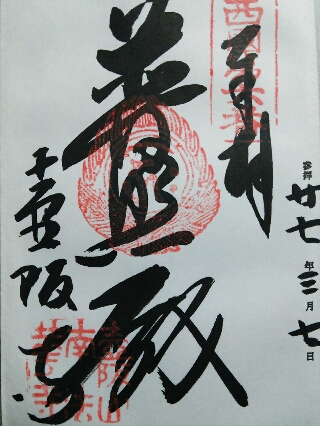 参拝 廿七年三月七日
奉拝
西國第六番
普照殿
壺阪寺
壺阪山
南法
華寺